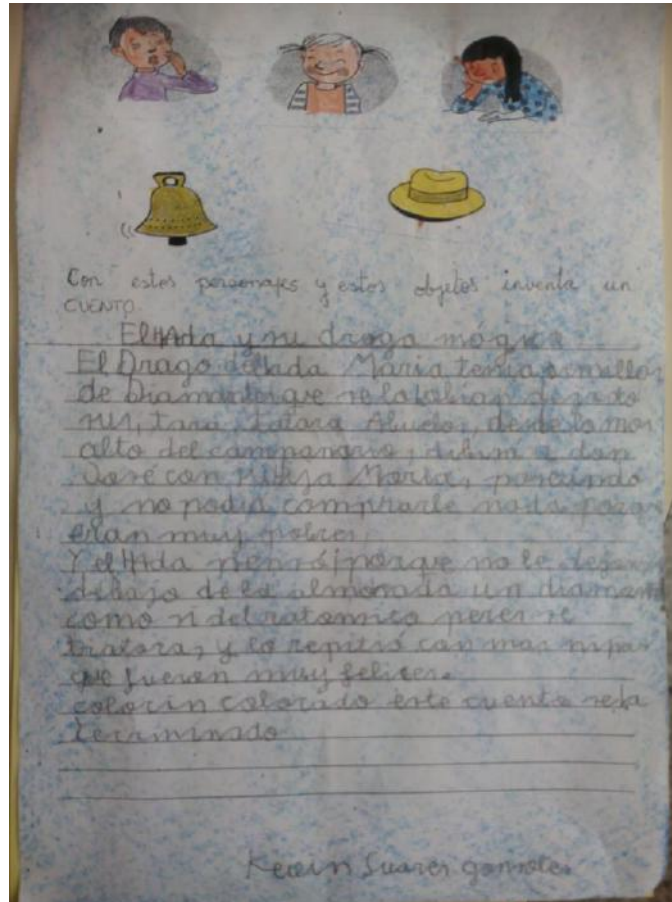 Con estos personajes y estos objetos inventa un
CUENTO.
El HAda y su drago mágico
El Drago del Hada Maria tenia semillas
de Diamantes que se la habian dejado
sus, tara, tatara Abuelos, desde lo mas
alto del campanario, a don
José con su hija Maria,
y no podia comprarle nada porq
eran muy pobres.
Y el HAda pensó porque no le dejan
debajo de la almoada un diaman
como si del ratoncito peres se
tratara, y lo repitió con mas
que fueron muy felices.
colorin colorado este cuento se ha
teraminado
Kevin Suares gonzales